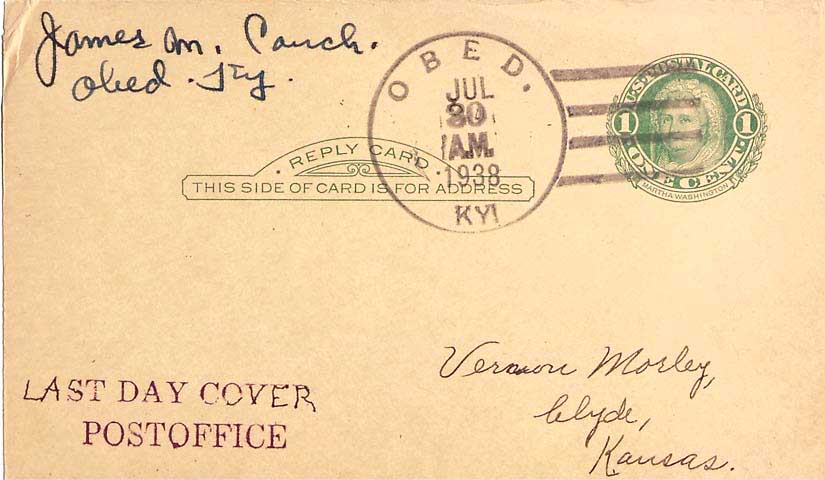 James M. Couch.
Obed. Ky.
OBED.
JUL
30
A.M.
1938
KY
U.S. POSTAL CARD
1 1
ONE CENT
MARTHA WASHINGTON
REPLY CARD
THIS SIDE OF CARD IS FOR ADDRESS
Vernon Morley,
Clyde,
Kansas.
LAST DAY COVER
POSTOFFICE